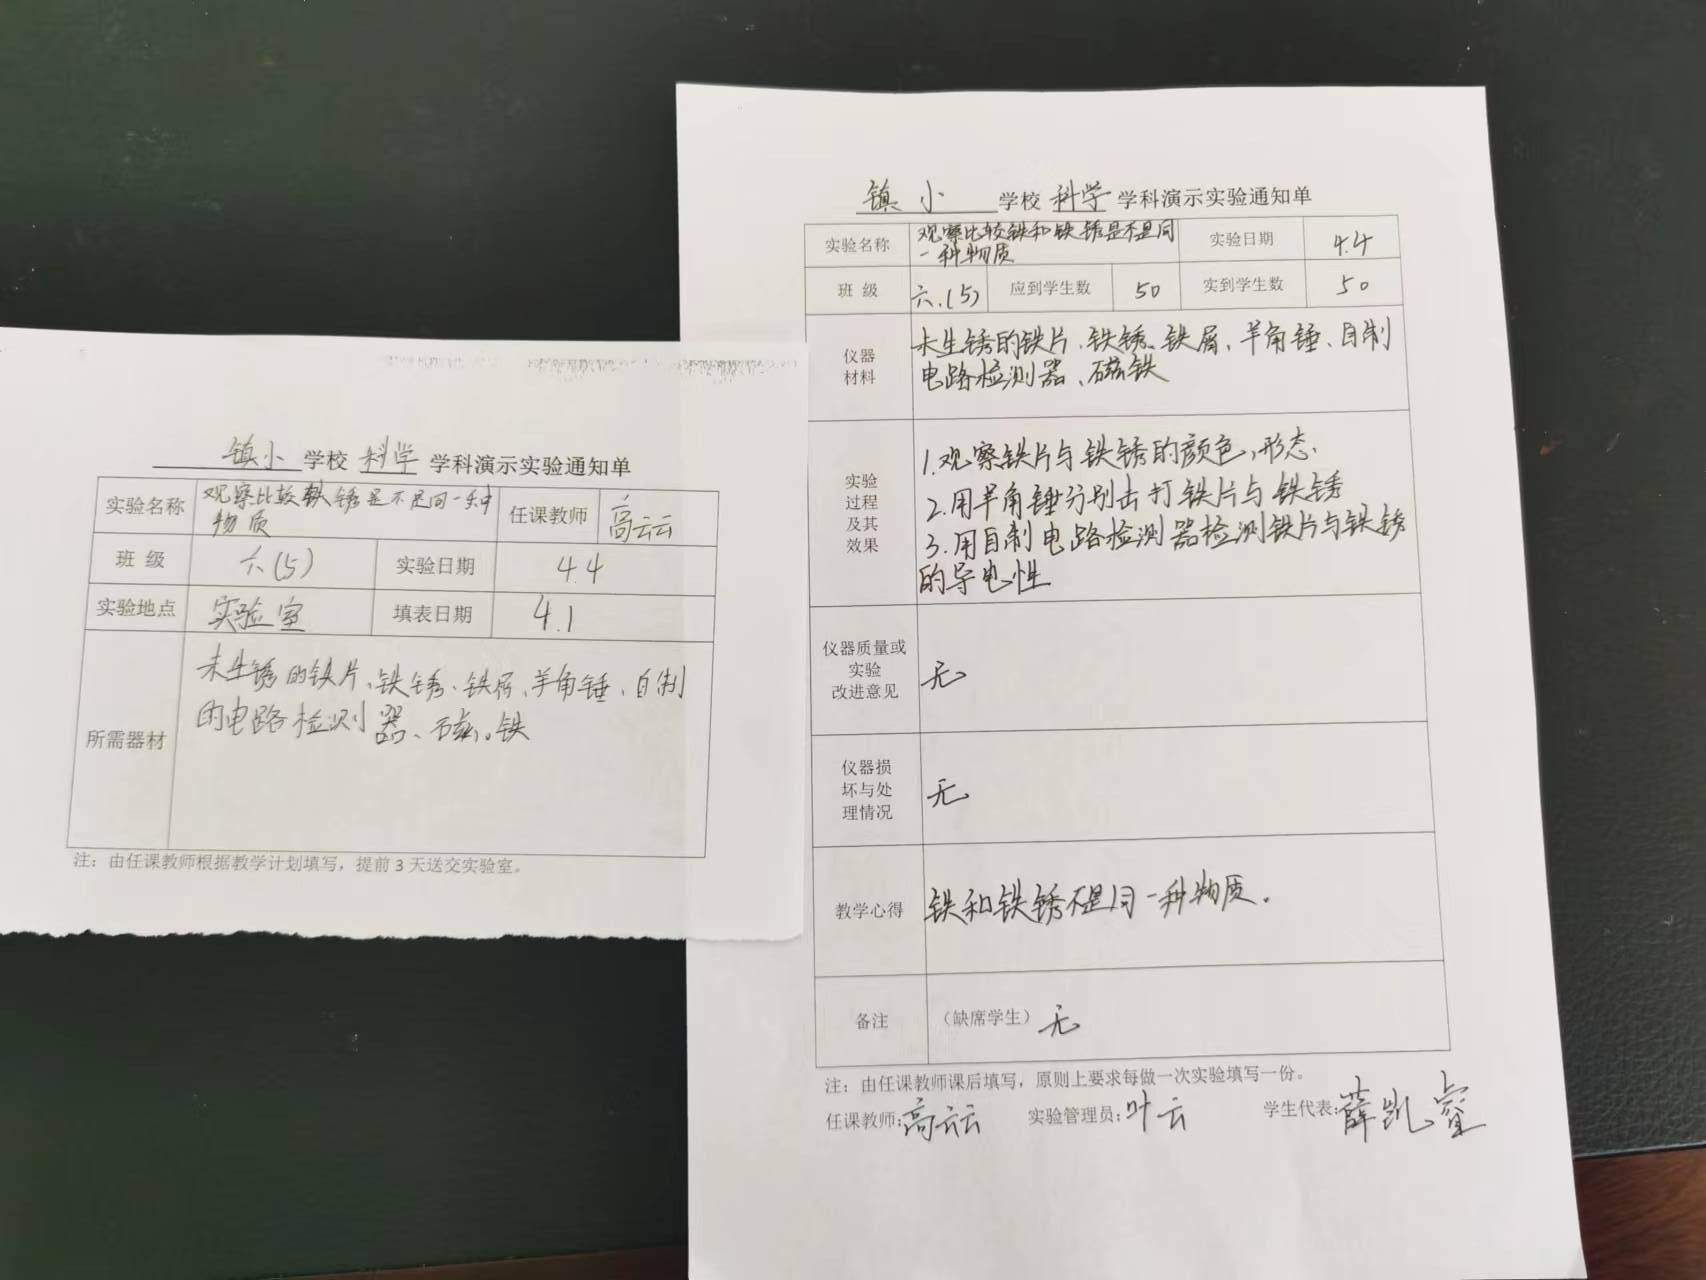 镇小 学校 科学 学科演示实验通知单
实验名称 观察比较铁锈是不是同一种
物质
任课教师 高云云
班 级 六(5) 实验日期 4.4
实验地点 实验室 填表日期 4.1
所需器材 未生锈的铁片、铁锈、铁屑、羊角锤、自制
的电路检测器、磁铁
注：由任课教师根据教学计划填写，提前 3 天送交实验室。
镇小 学校 科学 学科演示实验通知单
实验名称 观察比较铁和铁锈是不是同
一种物质
实验日期 4.4
班 级 六.(5) 应到学生数 50 实到学生数 50
仪器
材料
未生锈的铁片、铁锈、铁屑、羊角锤、自制
电路检测器、磁铁
实验
过程
及其
效果
1.观察铁片与铁锈的颜色,形态.
2.用羊角锤分别击打铁片与铁锈
3.用自制电路检测器检测铁片与铁锈
的导电性
仪器质量或
实验
改进意见
无
仪器损
坏与处
理情况
无
教学心得 铁和铁锈不是同一种物质.
备注 （缺席学生）无
注：由任课教师课后填写，原则上要求每做一次实验填写一份。
任课教师:高云云 实验管理员:叶云 学生代表:薛凯睿